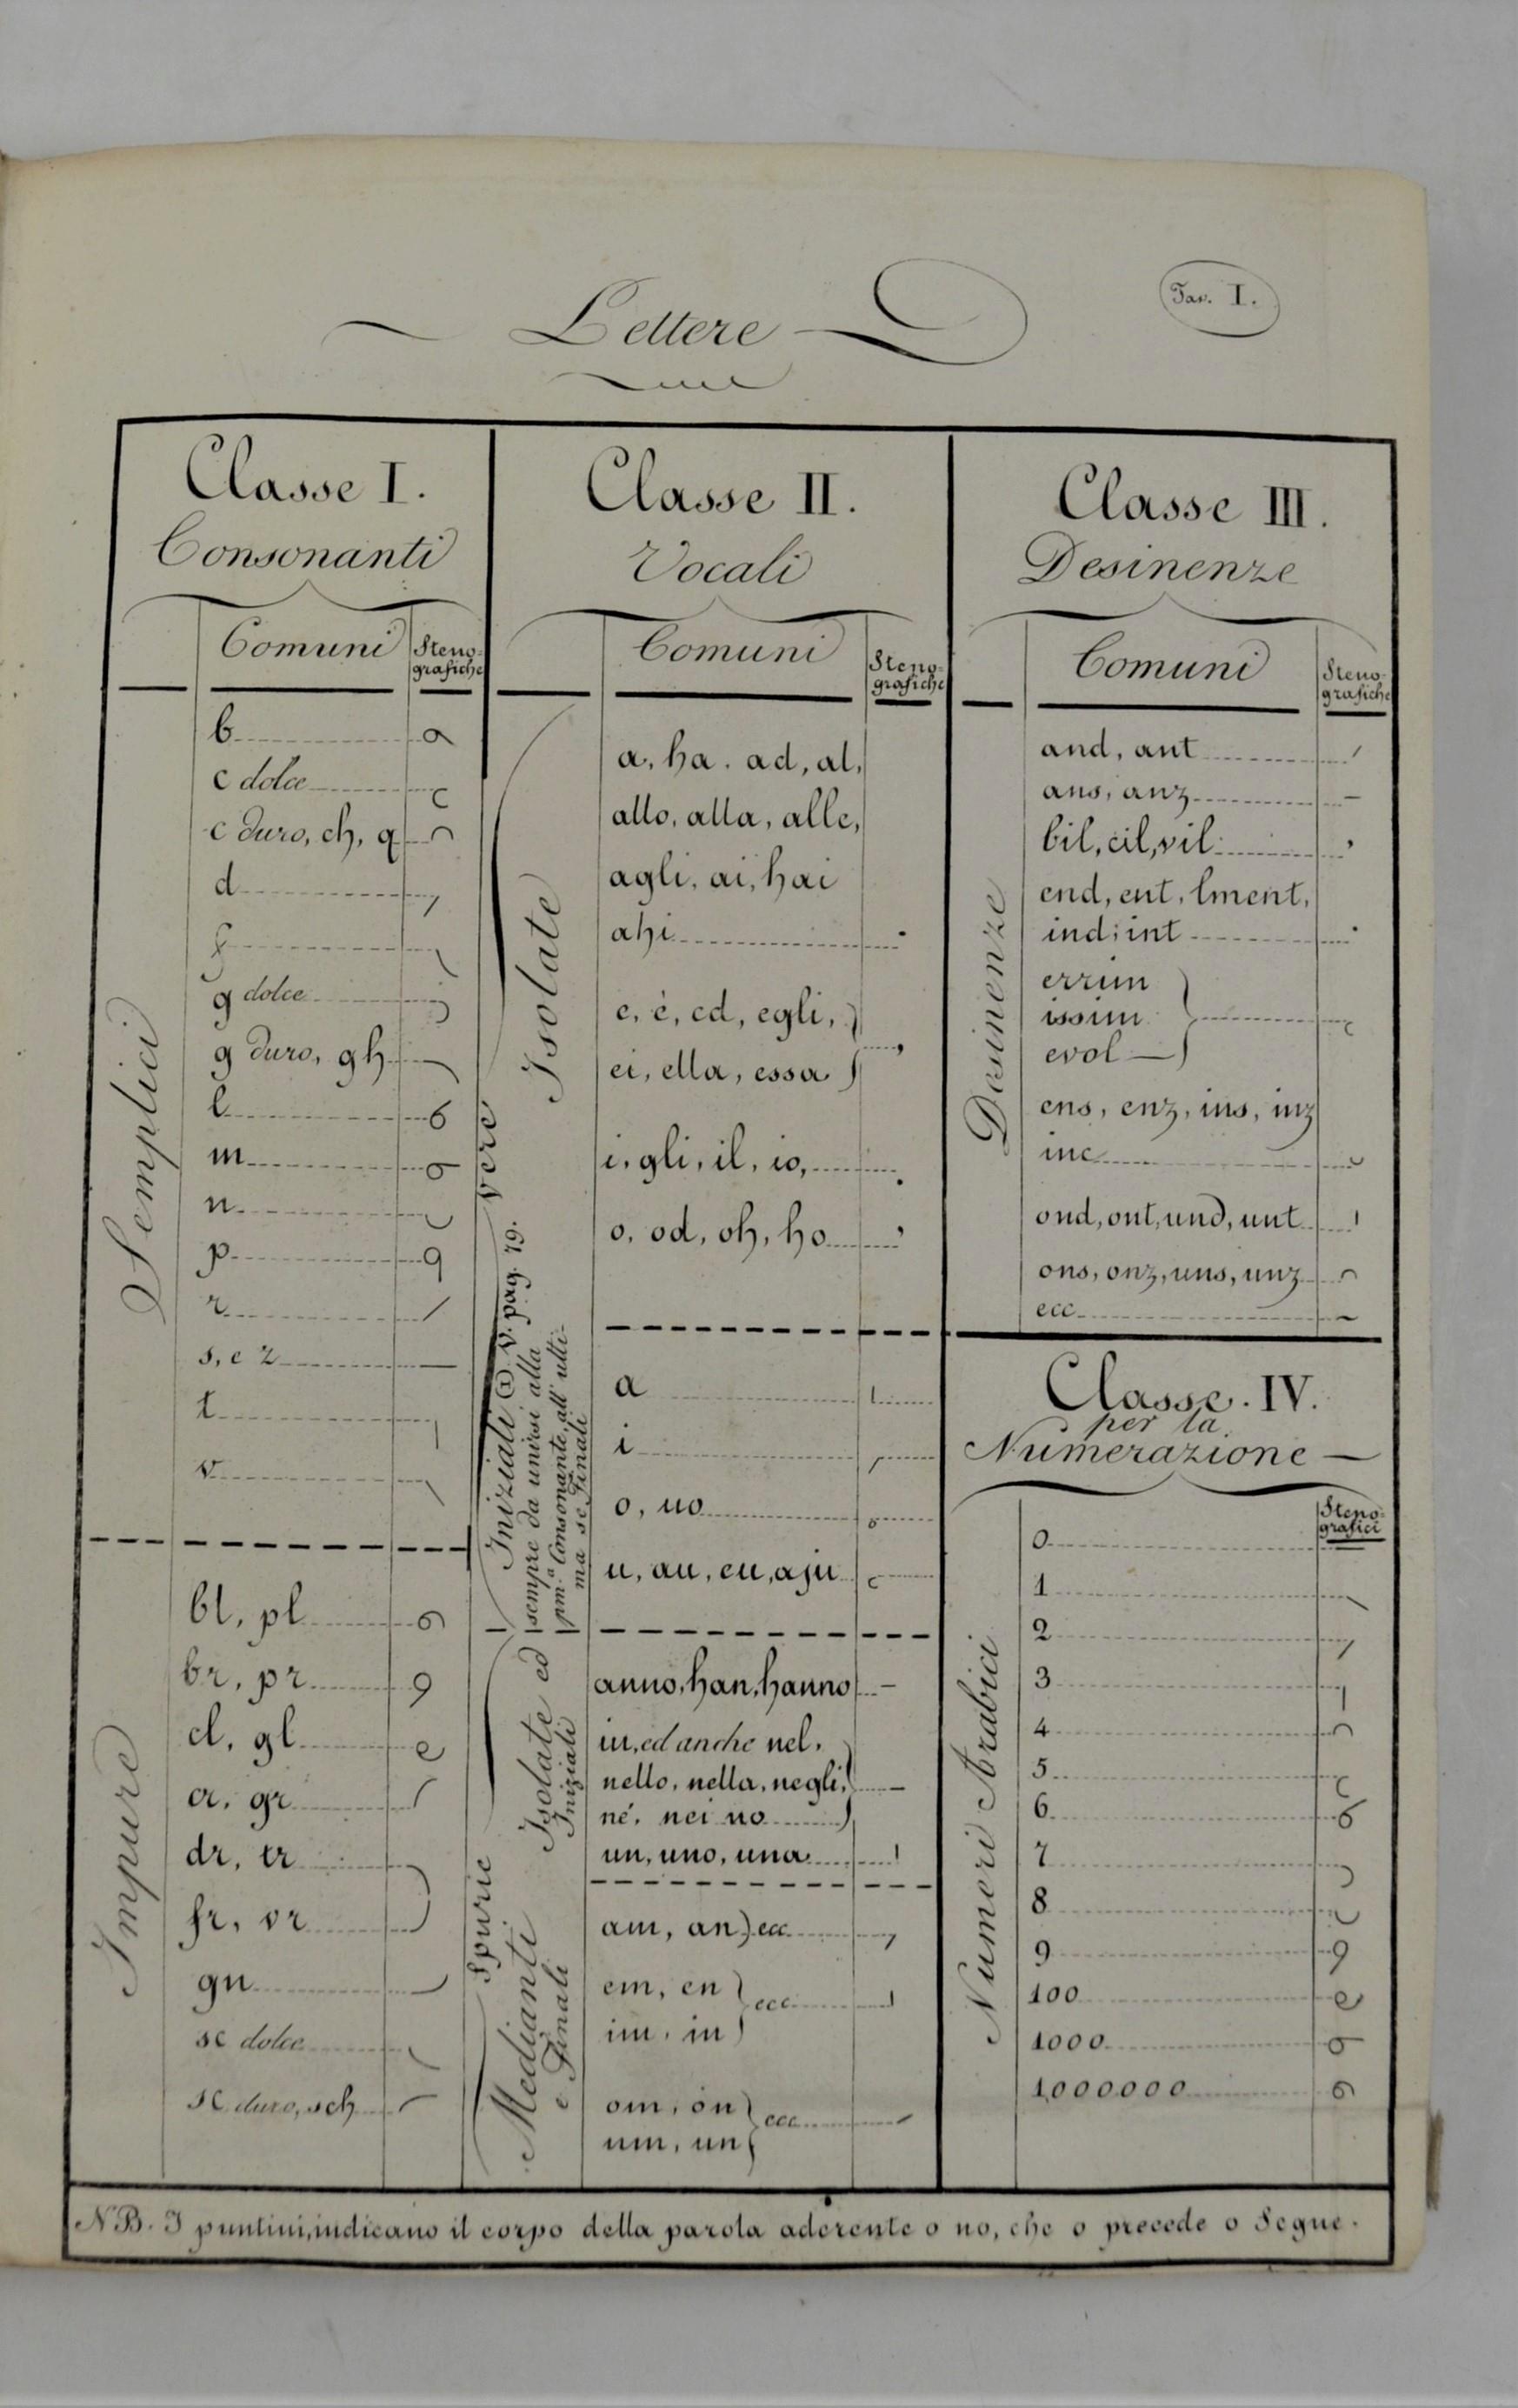 Tav. I.
Lettere
Classe I.
Consonanti
Comuni
Steno-
grafiche
Semplici
b
c dolce
c duro, ch, q
d
f
g dolce
g duro, gh
l
m
n
p
r
s, e z
t
v
Impure
bl, pl
br, pr
cl, gl
cr, gr
dr, tr
fr, vr
gn
sc dolce
sc duro, sch
Classe II.
Vocali
Comuni
Steno-
grafiche
Vere
Isolate
a, ha. ad, al,
allo, alla, alle,
agli, ai, hai
ahi
e, è, ed, egli,
ei, ella, essa
i, gli, il, io,
o, od, oh, ho
Iniziali (1) V. pag. 19.
sempre da unirsi alla
pm.a Consonante, all' ulti-
ma se Finali
a
i
o, uo
u, au, eu, aju
Spurie
Isolate ed
Iniziali
anno, han, hanno
in, ed anche nel,
nello, nella, negli,
né, nei no
un, uno, una
Medianti
e Finali
am, an) ecc
em, en
im, in
ecc
om, on
um, un
ecc
Classe III.
Desinenze
Comuni
Steno-
grafiche
Desinenze
and, ant
ans, anz
bil, cil, vil
end, ent, lment,
ind, int
errim
issim
evol
ens, enz, ins, inz
inc
ond, ont, und, unt
ons, onz, uns, unz
ecc
Classe. IV.
per la
Numerazione
Steno-
grafici
Numeri Arabici
0
1
2
3
4
5
6
7
8
9
100
1000
1000000
NB. I puntini, indicano il corpo della parola aderente o no, che o precede o segue.